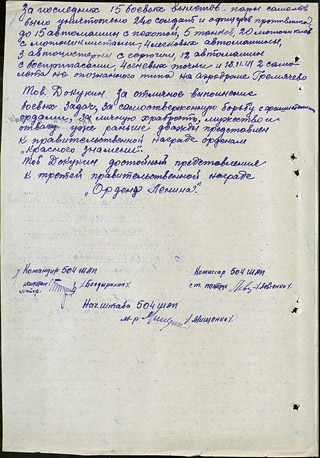 За последних 15 боевых вылетов пары самолет
было уничтожено 240 солдат и офицеров противника,
до 15 автомашин с пехотой, 5 танков, 20 мотоциклов
с мотоциклистами, 4 легковых автомашины,
3 автоцистерны с горючим, 12 автомашин
с боеприпасами, 4 огневых точки и 12.11.41 2 само-
лета не опознанного типа на аэродроме
Тов. Докукин за отличное выполнение
боевых задач, за самоотверженную борьбу с фашистскими
ордами, за личную храбрость, мужество и
отвагу уже раньше дважды представлен
к правительственной награде орденам
„Красного знамени".
Тов Докукин достойный представления
к третей правительственной награде
„Ордена Ленина".
Командир 504 шап
майор
Комиссар 504 шап
ст.
Нач штаба 504 шап
м-р /Мищенко/.